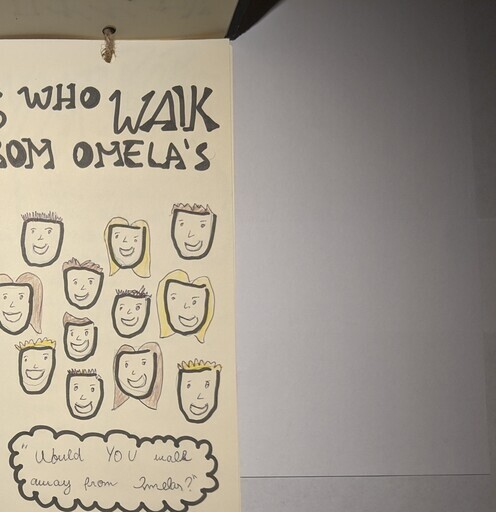 S WHO WALK
ROM OMELA'S
"Would YOU walk
away from Omelas?"